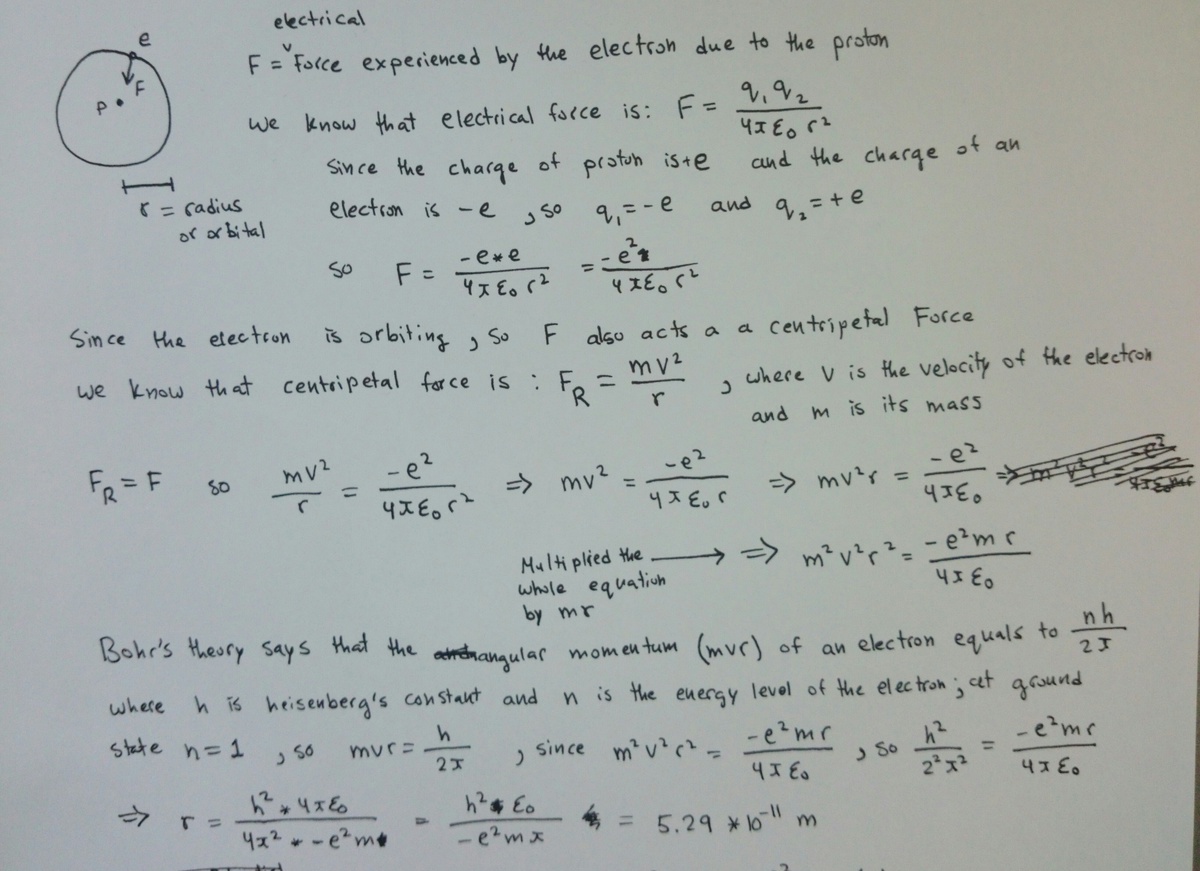 e
F
P
r = radius
or orbital
electrical
F = Force experienced by the electron due to the proton
we know that electrical force is: F = q₁q₂ / 4πε₀r²
Since the charge of proton is +e and the charge of an
electron is -e , so q₁=-e and q₂=+e
so F = -e*e / 4πε₀r² = -e² / 4πε₀r²
Since the electron is orbiting , so F also acts a a centripetal Force
we know that centripetal force is : F_R = mv² / r , where V is the velocity of the electron
and m is its mass
F_R = F so mv² / r = -e² / 4πε₀r² ⇒ mv² = -e² / 4πε₀r ⇒ mv²r = -e² / 4πε₀
Multiplied the
whole equation
by mr
⟶ ⇒ m²v²r² = -e²mr / 4πε₀
Bohr's theory says that the angular momentum (mvr) of an electron equals to nh / 2π
where h is heisenberg's constant and n is the energy level of the electron; at ground
state n=1 , so mvr = h / 2π , since m²v²r² = -e²mr / 4πε₀ , so h² / 2²π² = -e²mr / 4πε₀
⇒ r = h² * 4πε₀ / 4π² * -e²m = h² ε₀ / -e²mπ = 5.29 * 10⁻¹¹ m